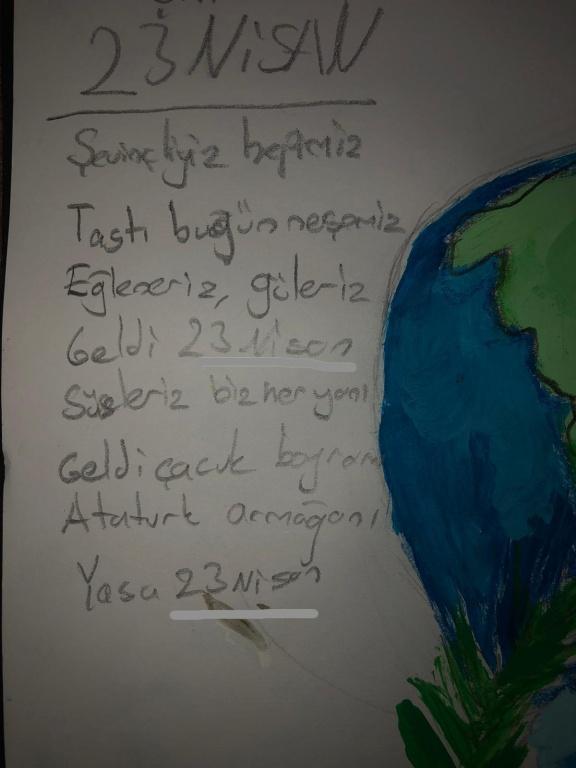 23 NİSAN
Sevinçliyiz hepimiz
Taştı bugün neşemiz
Eğleneriz, güleriz
Geldi 23 Nison
Süsleriz biz her yanı
Geldi çacuk bayram
Ataturk armağanı
Yasa 23 Nison